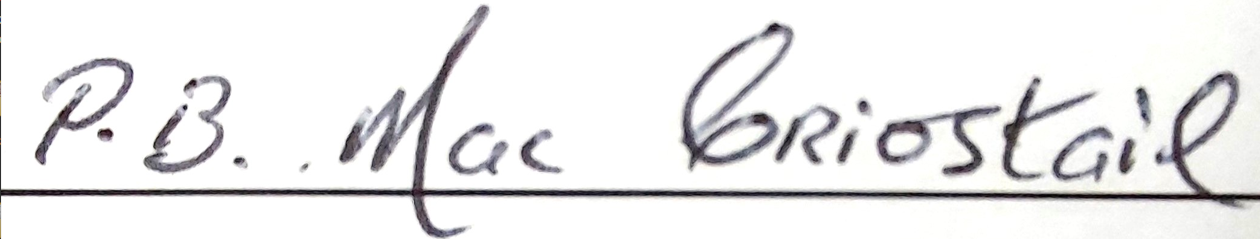 P.B. Mac Criostail